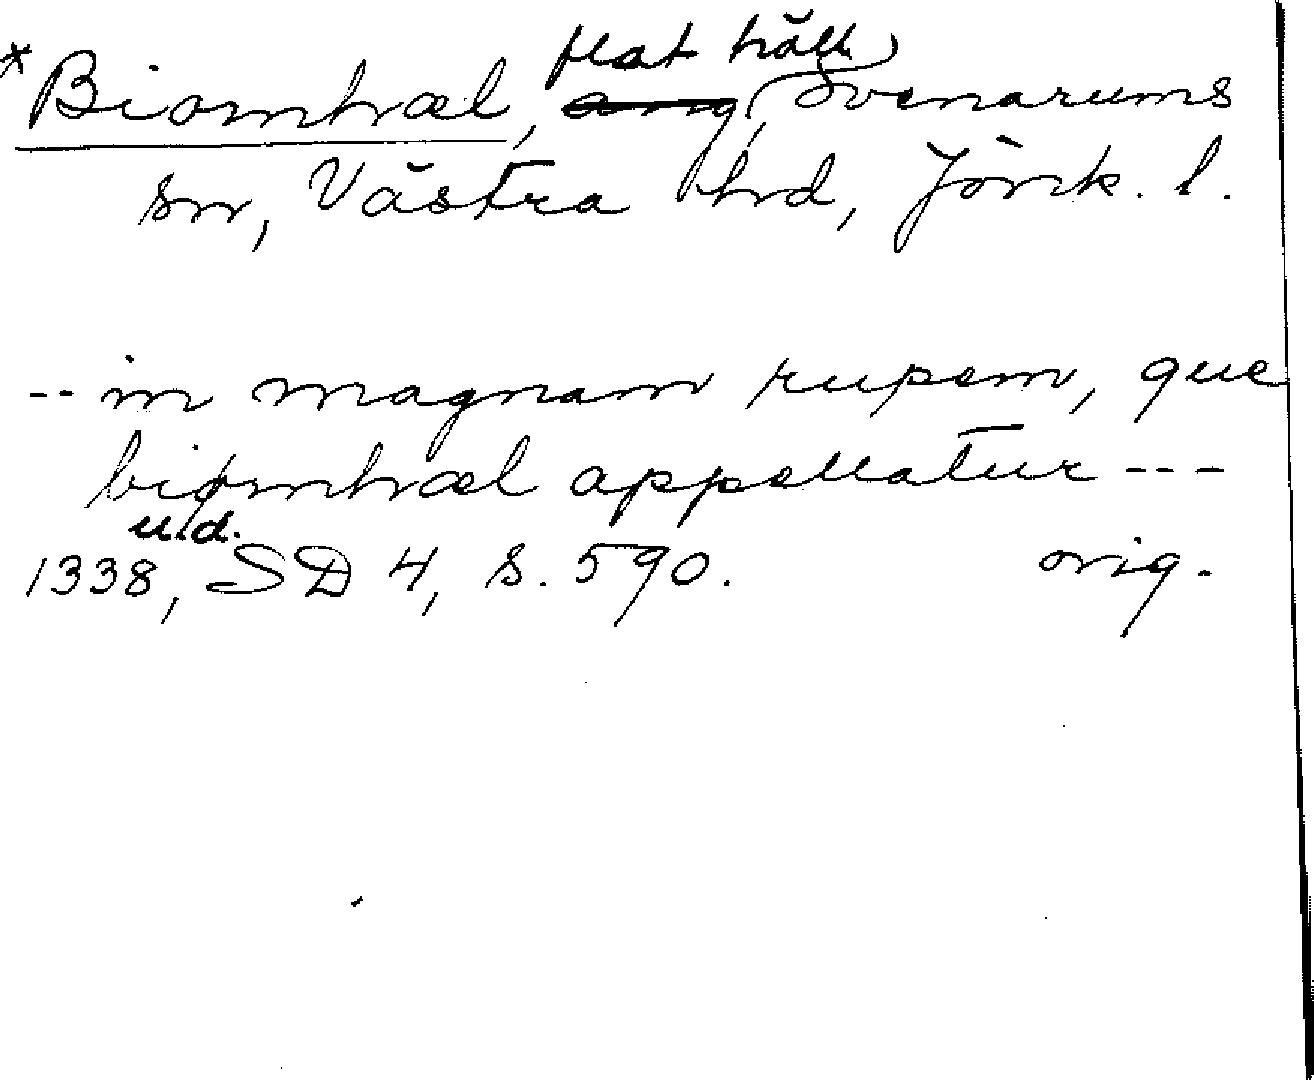 flat häll
*Biornhæl, äng, Svenarums
sn, Västra hrd, Jönk. l.
-- in magnam rupem, que
biørnhæl appellatur ---
u.d.
1338, SD 4, s. 590. orig.